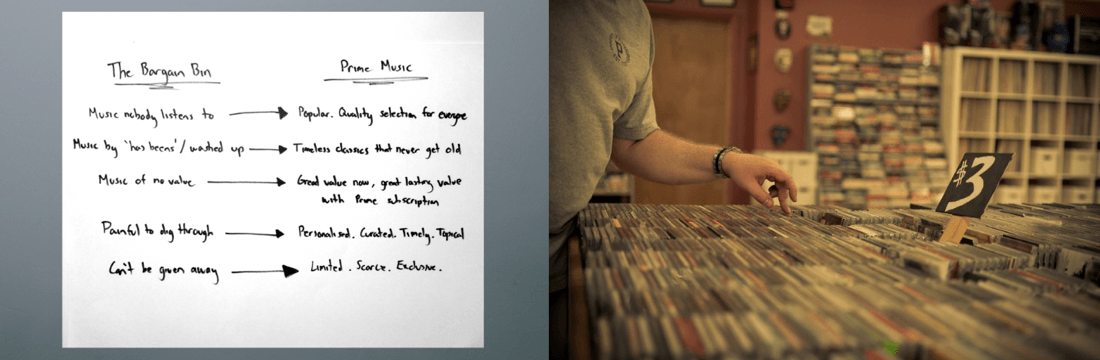 The Bargain Bin
Prime Music
Music nobody listens to → Popular. Quality selection for everyone
Music by 'has beens'/washed up → Timeless classics that never get old
Music of no value → Great value now, great lasting value
with Prime subscription
Painful to dig through → Personalised. Curated. Timely. Topical
Can't be given away → Limited. Scarce. Exclusive.
$3